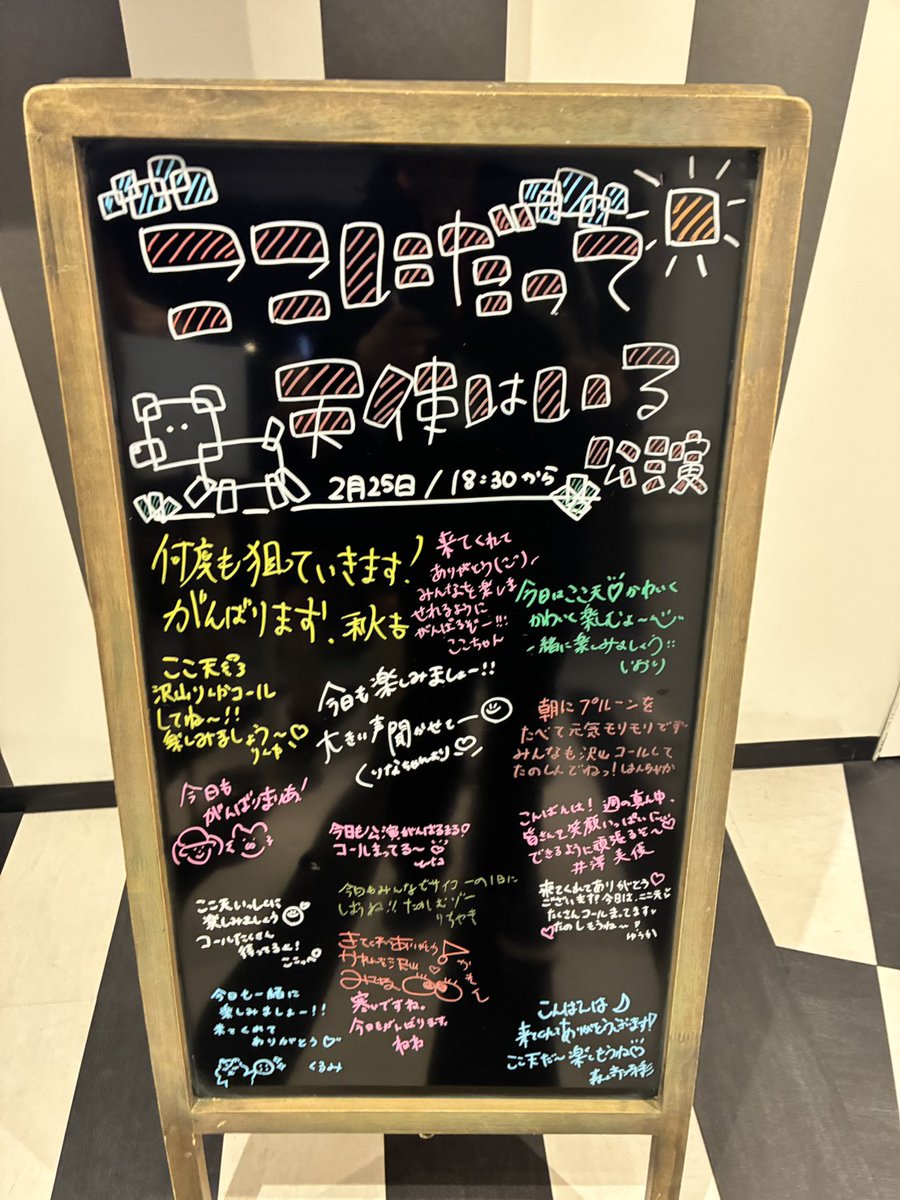 ここにだって
天使はいる
公演
2月25日/18:30から
何度も狙っていきます!
がんばります!秋吉
来てくれて
ありがとう
みんなを楽しま
せれるように
がんばるぞー!!!
ここちゃん
今日はここ天♡かわいく
かわいく楽しむよ〜
一緒に楽しみましょう
いおり
ここ天も
沢山りんかコール
してね〜!!
楽しみましょう〜
今日も楽しみましょー!!
大きい声聞かせてー
くりなちゃんより♡
朝にプルーンを
たべて元気モリモリです
みんなも沢山コールして
たのしんでねっ!
今日も
がんばりまりあ!
今日も公演がんばるまる♡
コールまってる〜
こんばんは!週の真ん中、
皆さんで笑顔いっぱいに
できるように頑張るぞ〜♡
井澤美優
ここ天いっしょに
楽しみましょう
コールたくさん
待ってるよ!
今日もみんなでサイコーの1日に
しようね!!たのしむゾー
りちゃき
来てくれてありがとう♡
ございます!今日は、ここ天
たくさんコールまってます
♡たのしもうね〜!
ゆうか
きてくれてありがとう
かれんを沢山
みにきて
寒いですね。
今日もがんばります。
ねね
今日も一緒に
楽しみましょー!!
来てくれて
ありがとう♡
くるみ
こんばんは♪
来てくれてありがとうございます!
ここ天だ〜楽しもうね♡